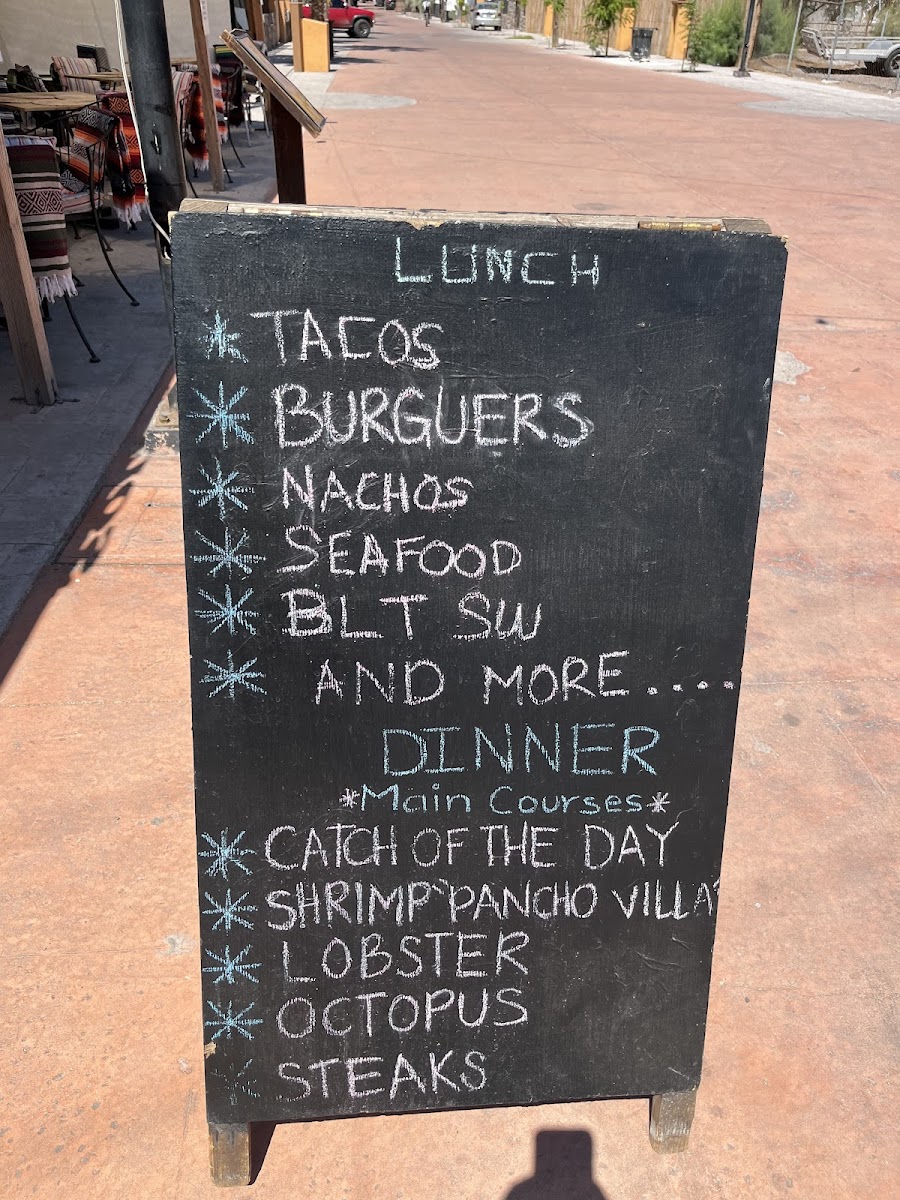 LUNCH
TACOS
BURGUERS
NACHOS
SEAFOOD
BLT SW
AND MORE.....
DINNER
*Main Courses*
CATCH OF THE DAY
SHRIMP "PANCHO VILLA"
LOBSTER
OCTOPUS
STEAKS